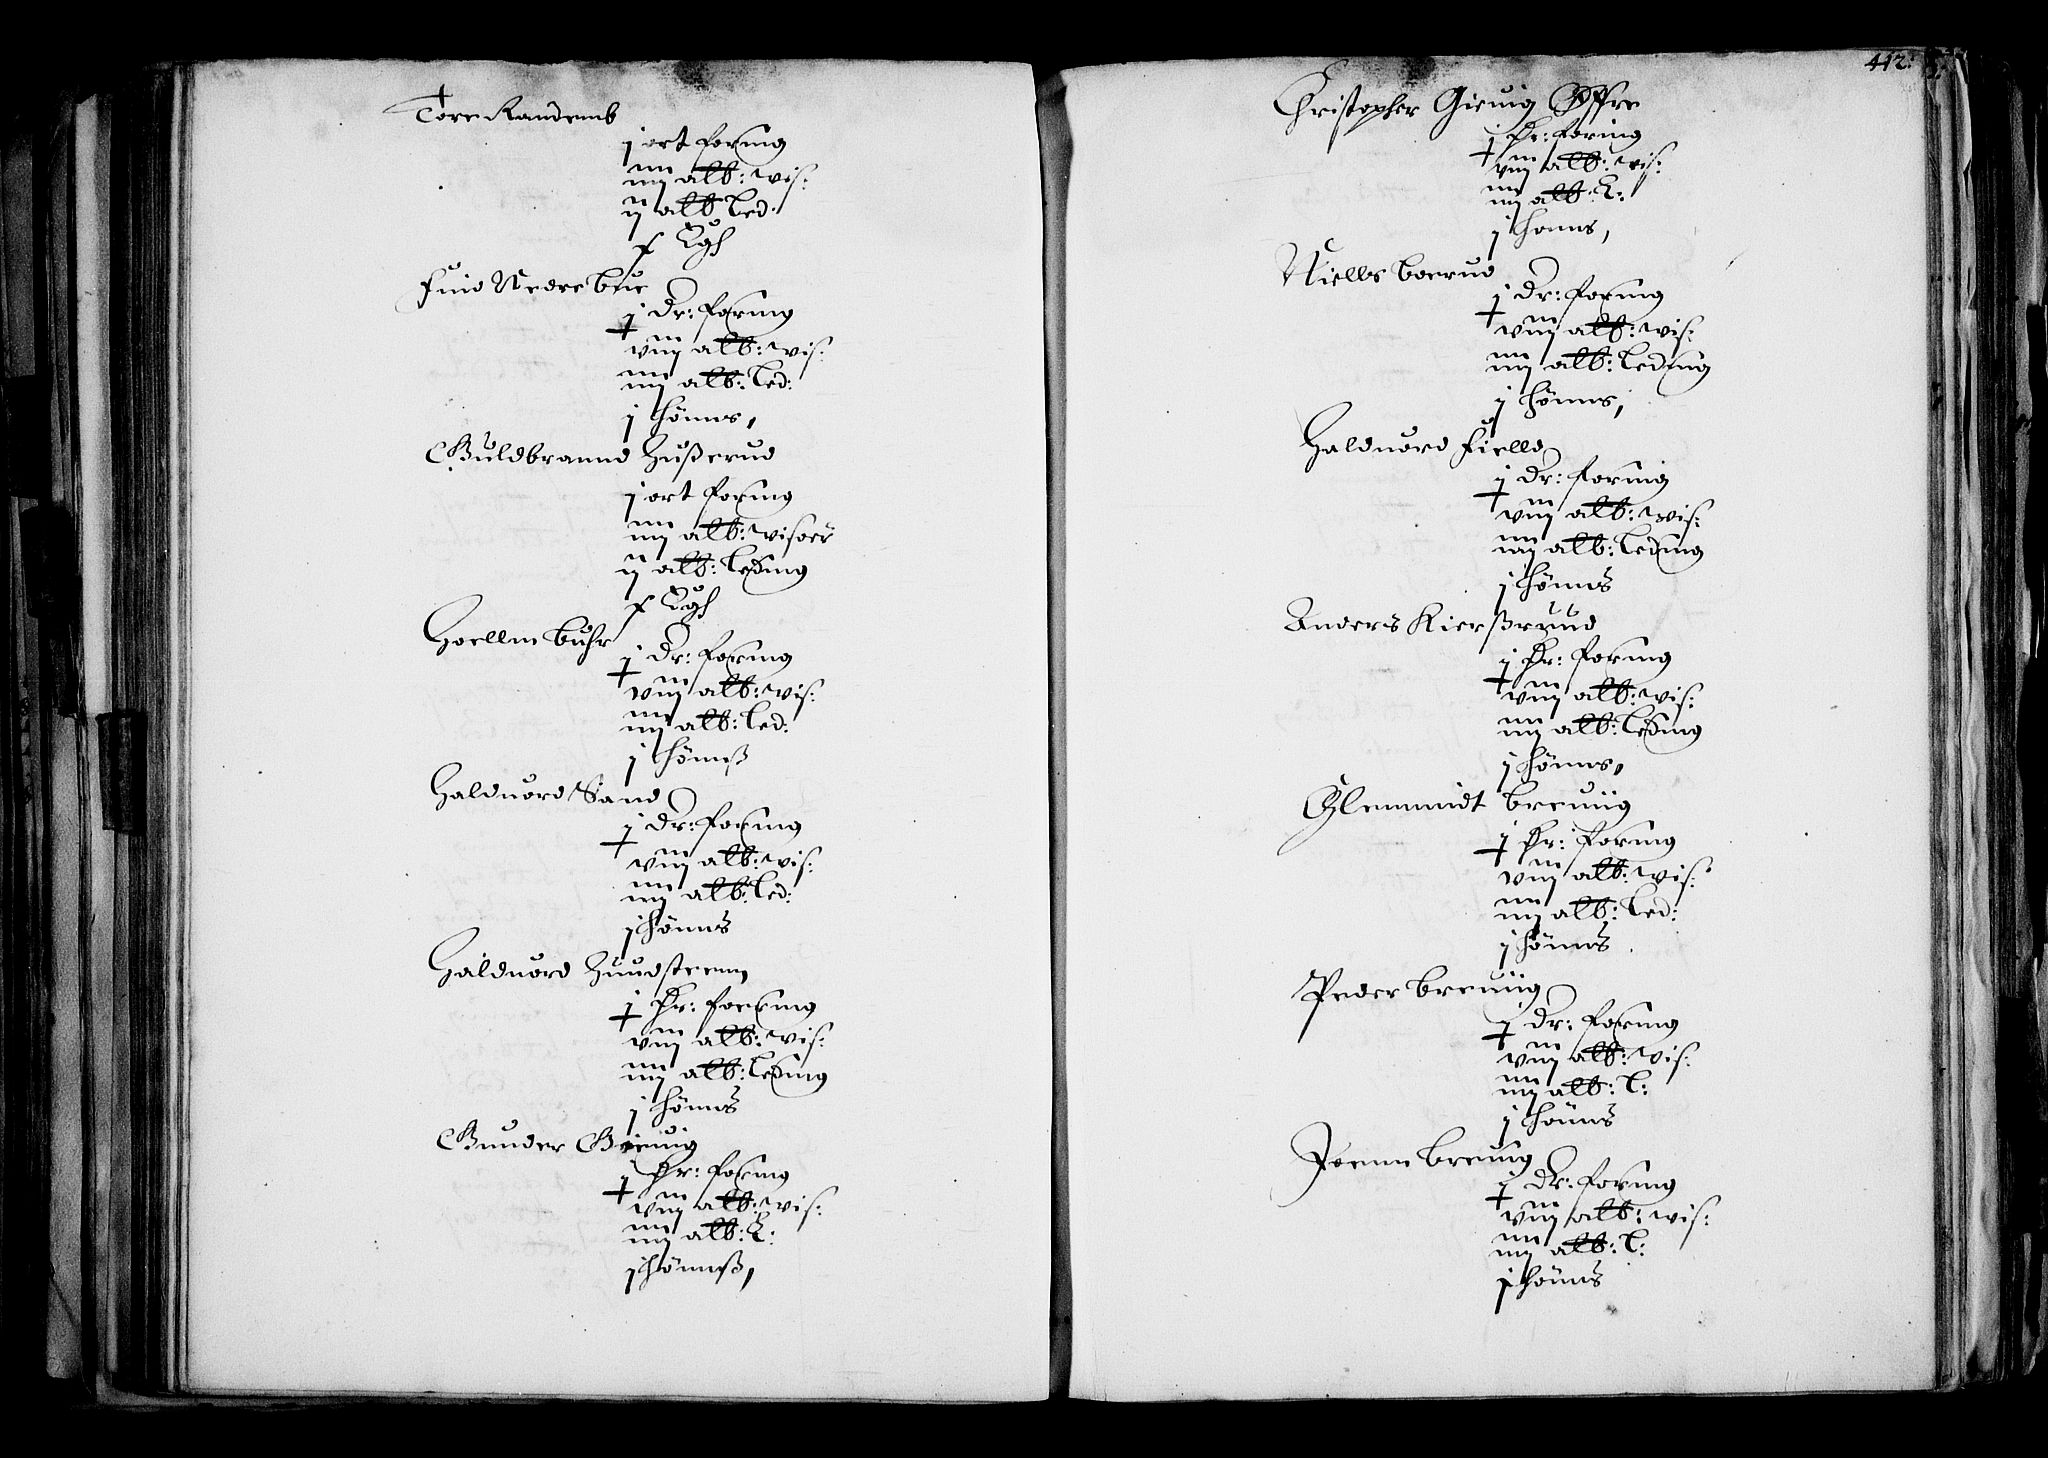 Tore Randemb
j ort foring
iiij alb: wis:
ij alb led:
f Egh
Find Nedre bue
j Dr: foring
viij alb: wis:
iiij alb: led:
j hönns,
Guldbrannd Hußerud
j ort foring
iiij alb: wisöer
ij alb: leding
f Egh
Hoellm buhr
j Dr: foring
viij alb: wis:
iiij alb: led:
j hönnß
Halduord Sand
j Dr: foring
viij alb: wis:
iiij alb: led:
j hönns
Halduord Hundsteenn
j Dr: foering
viij alb: wis:
iiij alb: leding
j hönns
Gunder Gieuig
j Dr: foring
viij alb: wis:
iiij alb: L:
j hönneß,
412:
Christopher Gieuig Øfre
j Dr: foring
viij alb: wis:
iiij alb: L:
j honns,
Niells boerud
j Dr: foring
viij alb: wis:
iiij alb: leding
j hönns,
Halduord Fielld
j Dr: foring
viij alb: wis:
iiij alb: leding
j hönns
Anders Kierßruud
j Dr: foring
viij alb: wis:
iiij alb: leding
j hönns,
Glemmidt breuiig
j Dr: foring
viij alb: wis:
iiij alb: led:
j hönns
Peder breuiig
j Dr: foring
viij alb: wis:
iiij alb: l:
j hönns
Joenn breuig
j Dr: foring
viij alb: wis:
iiij alb: l:
j hönns